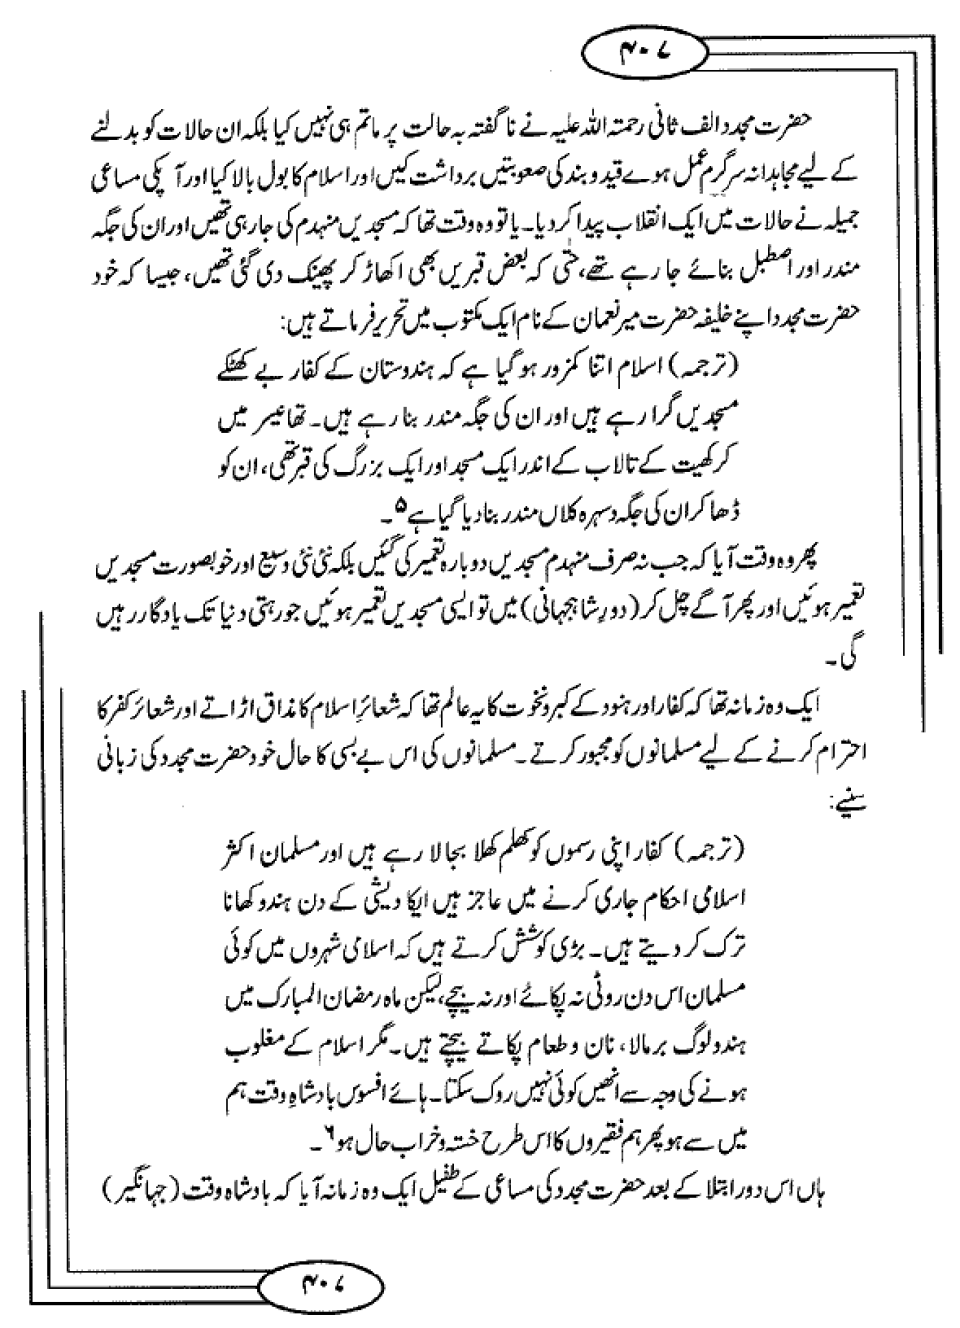 ۴۰۷
حضرت مجدد الف ثانی رحمتہ اللہ علیہ نے ناگفتہ بہ حالت پر ماتم ہی نہیں کیا بلکہ ان حالات کو بدلنے
کے لیے مجاہدانہ سرگرم عمل ہوے قید و بند کی صعوبتیں برداشت کیں اور اسلام کا بول بالا کیا اور آپکی مساعی
جمیلہ نے حالات میں ایک انقلاب پیدا کر دیا۔ یا تو وہ وقت تھا کہ مسجدیں منہدم کی جارہی تھیں اور ان کی جگہ
مندر اور اصطبل بنائے جا رہے تھے، حتٰی کہ بعض قبریں بھی اکھاڑ کر پھینک دی گئی تھیں، جیسا کہ خود
حضرت مجدد اپنے خلیفہ حضرت میر نعمان کے نام ایک مکتوب میں تحریر فرماتے ہیں:
(ترجمہ) اسلام اتنا کمزور ہو گیا ہے کہ ہندوستان کے کفار بے کھٹکے
مسجدیں گرا رہے ہیں اور ان کی جگہ مندر بنا رہے ہیں۔ تھانیسر میں
کرکھیت کے تالاب کے اندر ایک مسجد اور ایک بزرگ کی قبر تھی، ان کو
ڈھا کر ان کی جگہ دسہرہ کلاں مندر بنا دیا گیا ہے۵۔
پھر وہ وقت آیا کہ جب نہ صرف منہدم مسجدیں دوبارہ تعمیر کی گئیں بلکہ نئی نئی وسیع اور خوبصورت مسجدیں
تعمیر ہوئیں اور پھر آگے چل کر (دورِ شاہجہانی) میں تو ایسی مسجدیں تعمیر ہوئیں جو رہتی دنیا تک یادگار رہیں
گی۔
ایک وہ زمانہ تھا کہ کفار اور ہنود کے کبر و نخوت کا یہ عالم تھا کہ شعائرِ اسلام کا مذاق اڑاتے اور شعائر کفر کا
احترام کرنے کے لیے مسلمانوں کو مجبور کرتے۔ مسلمانوں کی اس بے بسی کا حال خود حضرت مجدد کی زبانی
سنیے:
(ترجمہ) کفار اپنی رسموں کو کھلم کھلا بجا لا رہے ہیں اور مسلمان اکثر
اسلامی احکام جاری کرنے میں عاجز ہیں ایکا ویشی کے دن ہندو کھانا
ترک کر دیتے ہیں۔ بڑی کوشش کرتے ہیں کہ اسلامی شہروں میں کوئی
مسلمان اس دن روٹی نہ پکائے اور نہ بیچے، لیکن ماہ رمضان المبارک میں
ہندو لوگ برمالا، نان و طعام پکاتے بیچتے ہیں۔ مگر اسلام کے مغلوب
ہونے کی وجہ سے انھیں کوئی نہیں روک سکتا۔ ہائے افسوس بادشاہِ وقت ہم
میں سے ہو پھر ہم فقیروں کا اس طرح خستہ و خراب حال ہو۶۔
ہاں اس دور ابتلا کے بعد حضرت مجدد کی مساعی کے طفیل ایک وہ زمانہ آیا کہ بادشاہ وقت (جہانگیر)
۴۰۷